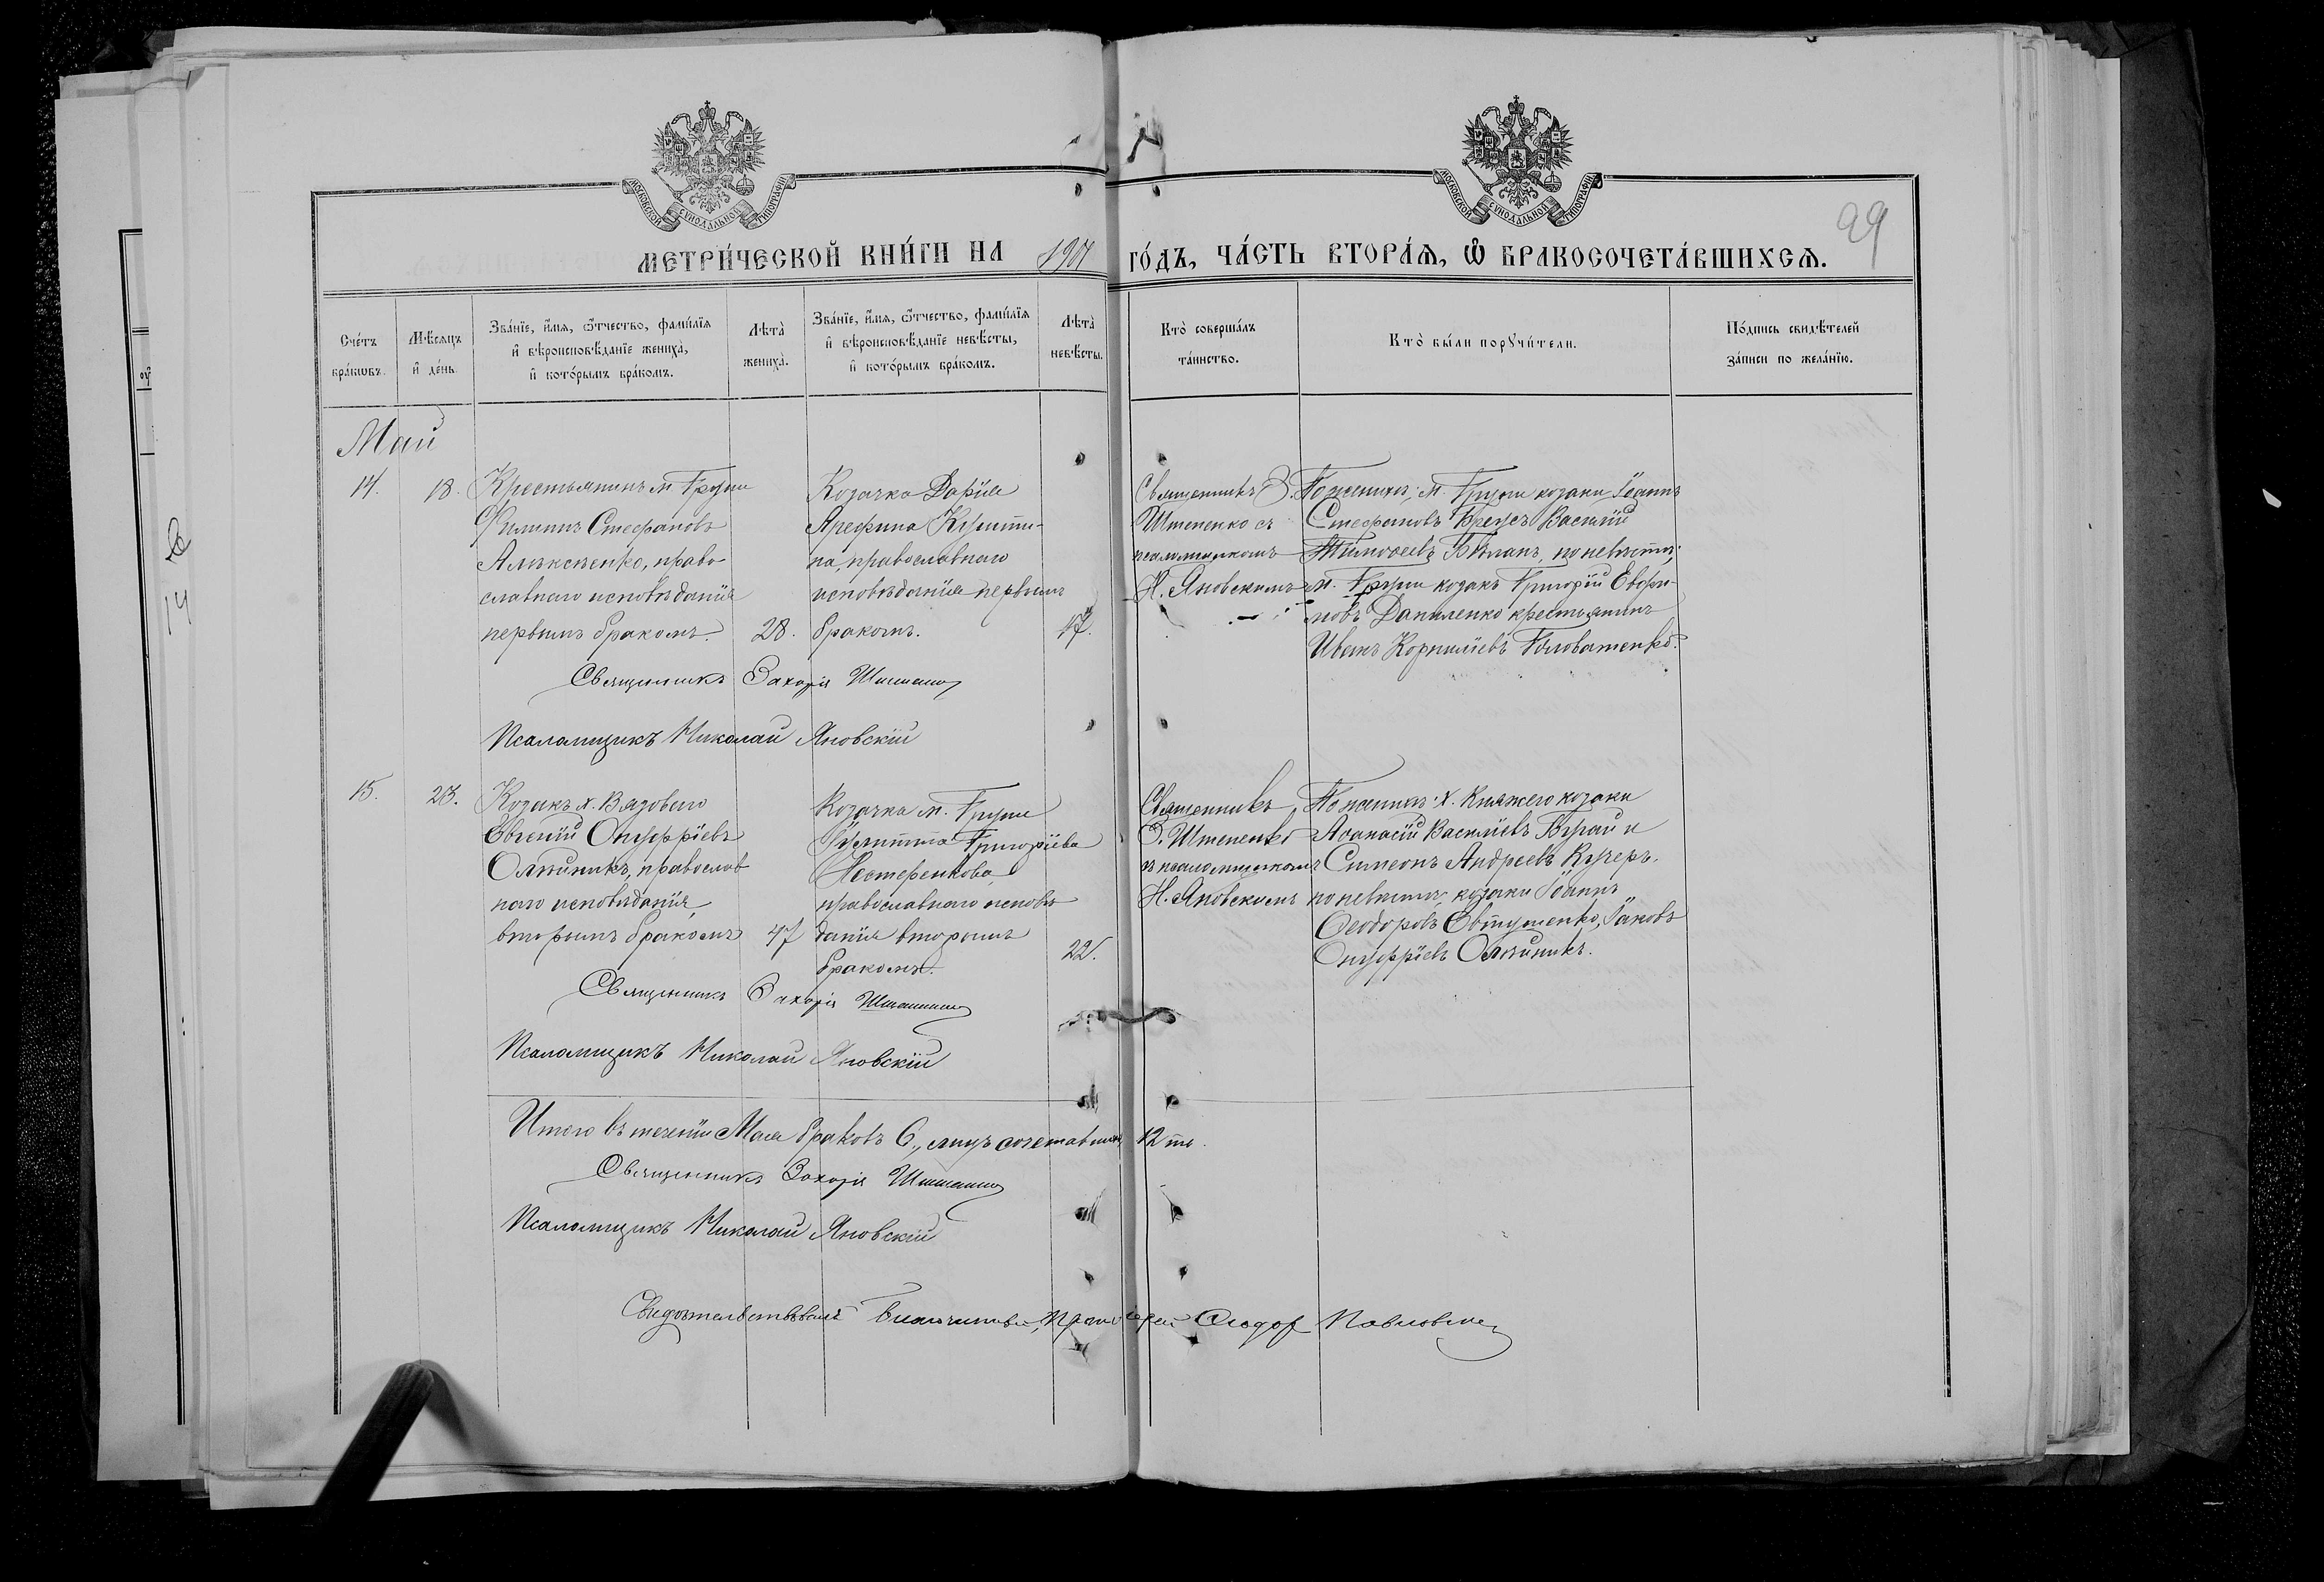 МОСКОВСКОЙ СѴНОДАЛЬНОЙ ТИПОГРАФІИ
МОСКОВСКОЙ СѴНОДАЛЬНОЙ ТИПОГРАФІИ
99
МЕТРИ́ЧЕСКОЙ КНИ́ГИ НА 1901 ГО́ДЪ, ЧА́СТЬ ВТОРА́Ѧ, Ѽ БРАКОСОЧЕТА́ВШИХСѦ.
Сче́тъ бра́кѡвъ.
Мѣ́сѧцъ и҆ де́нь.
Зва́нїе, и҆́мѧ, ѻ҆́тчество, фами́лїѧ
и҆ вѣроисповѣ́данїе жениха̀,
и҆ кото́рымъ бра́комъ.
Лѣта̀ жениха̀.
Зва́нїе, и҆́мѧ, ѻ҆́тчество, фами́лїѧ
и҆ вѣроисповѣ́данїе невѣ́сты,
и҆ кото́рымъ бра́комъ.
Лѣта̀ невѣ́сты.
Кто̀ соверша́лъ та́инство.
Кто̀ бы́ли порꙋчи́тели.
По́дпись свидѣ́телей за́писи по жела́нїю.
Май
14.
18.
Крестьянинъ м. Груни
Филиппъ Стефановъ
Алексѣенко, право-
славнаго исповѣданія
первымъ бракомъ.
28.
Козачка Дарія
Арефина
на, православнаго
исповѣданія первымъ
бракомъ.
17.
Священникъ З.
Штепенко съ
псаломщикомъ
Н. Яновскимъ
По женихѣ: м. Груни козаки Іоаннъ
Стефановъ Василій
Тимоѳеевъ по невѣстѣ;
м. Груни козакъ Григорій Евфи-
мовъ Даниленко крестьянинъ
Иванъ Корниліевъ Головатенко.
Священникъ Захарія
Псаломщикъ Николай Яновскій
15.
23.
Козакъ х. Вязоваго
Евгеній Онуфріевъ
Олейникъ, православ
наго исповѣданія,
вторымъ бракомъ
47
Козачка м. Груни
Іулитта Григоріева
Нестеренкова,
православнаго исповѣ
данія вторымъ
бракомъ.
22.
Священникъ
З. Штепенко
съ псаломщикомъ
Н. Яновскимъ
По женихѣ: х. Княжего козаки
Аѳанасій Василіевъ Бурай и
Симеонъ Андреевъ Кучеръ.
по невѣстѣ, козаки Іоаннъ
Ѳеодоровъ Евтушенко, Іаковъ
Онуфріевъ Олейникъ.
Священникъ Захарія
Псаломщикъ Николай Яновскій
Итого въ теченіи Мая браковъ 6, лицъ сочетавшихся 12 ть.
Священникъ Захарія
Псаломщикъ Николай Яновскій
Свидѣтельствовалъ Благочинный, Протоіерей Ѳеодор